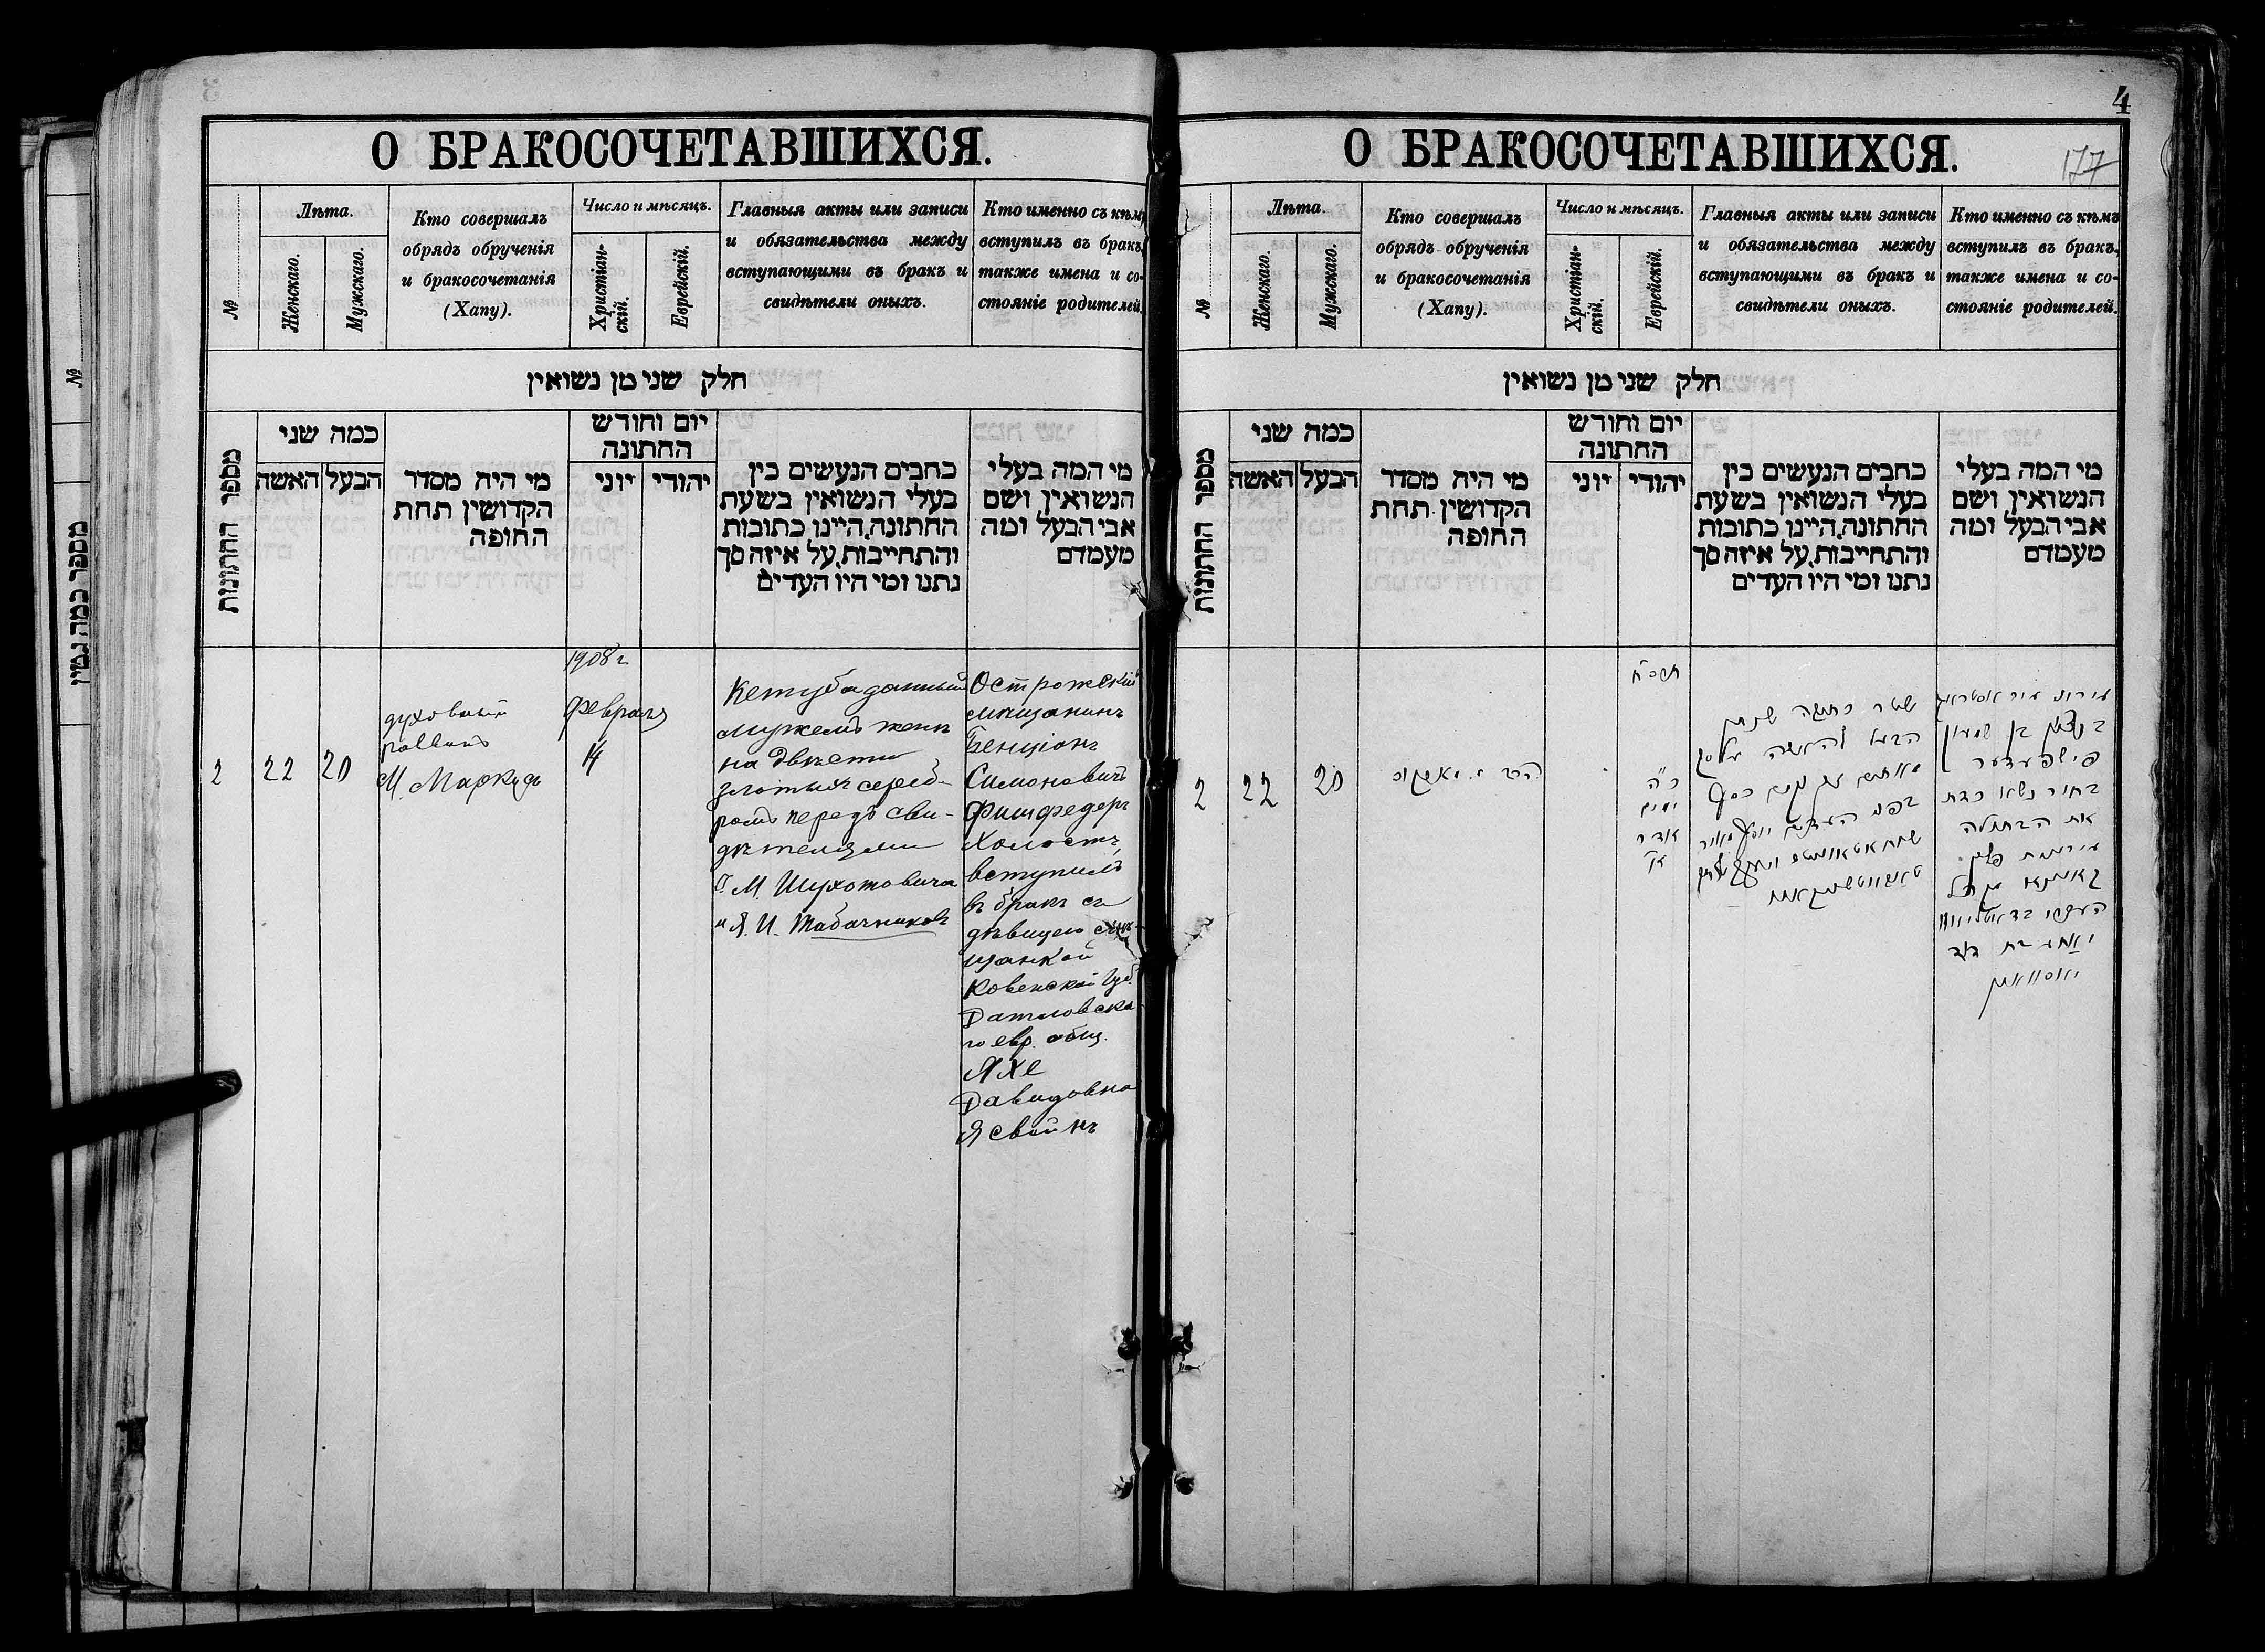 О БРАКОСОЧЕТАВШИХСЯ.
№
Лѣта.
Женскаго.
Мужскаго.
Кто совершалъ
обрядъ обрученія
и бракосочетанія
(Хапу).
Число и мѣсяцъ.
Христіан-
скій.
Еврейскій.
Главныя акты или записи
и обязательства между
вступающими въ бракъ и
свидѣтели оныхъ.
Кто именно съ кѣмъ
вступилъ въ бракъ,
также имена и со-
стояніе родителей.
חלק שני מן נשואין
מספר החתונות
כמה שני
האשה
הבעל
מי היה מסדר
הקדושין תחת
החופה
יום וחודש
החתונה
יוני
יהודי
כתבים הנעשים בין
בעלי הנשואין בשעת
החתונה, היינו כתובות
והתחייבות, על איזה סך
נתנו ומי היו העדים
מי המה בעלי
הנשואין ושם
אבי הבעל ומה
מעמדם
2
22
20
духовный
раввинъ
М. Маркусъ
1908 г
Февраля
14
Кетуба данный
мужемъ женѣ
на двѣсти
злотыхъ сереб-
ромъ передъ сви-
дѣтелями
М. Шухотовича
и Я. И. Табачниковъ
Острожскій
мѣщанинъ
Бенціонъ
Симоновичъ
Фишфедеръ
Холостъ,
вступилъ
въ бракъ съ
дѣвицею мѣ-
щанкой
Ковенской Губ.
Датновска
го евр. общ.
Яхе
Давидовна
Ясвоинъ
4
О БРАКОСОЧЕТАВШИХСЯ.
177
№
Лѣта.
Женскаго.
Мужскаго.
Кто совершалъ
обрядъ обрученія
и бракосочетанія
(Хапу).
Число и мѣсяцъ.
Христіан-
скій.
Еврейскій.
Главныя акты или записи
и обязательства между
вступающими въ бракъ и
свидѣтели оныхъ.
Кто именно съ кѣмъ
вступилъ въ бракъ,
также имена и со-
стояніе родителей.
חלק שני מן נשואין
מספר החתונות
כמה שני
האשה
הבעל
מי היה מסדר
הקדושין תחת
החופה
יום וחודש
החתונה
יוני
יהודי
כתבים הנעשים בין
בעלי הנשואין בשעת
החתונה, היינו כתובות
והתחייבות, על איזה סך
נתנו ומי היו העדים
מי המה בעלי
הנשואין ושם
אבי הבעל ומה
מעמדם
2
22
20
הרב מ. מארקוס
תרס״ח
כ״ה
ימים
אדר
א׳
שטר כתובה שנתן
הבעל להאשה על סך
מאתים זהובים כסף
בפני העדים
טאבאטשניקאוו
עירוני עיר אסטראג
בנציון בן שמעון
פישפעדער
בחור נשא כדת
את הבתולה
עירונית פלך
קאוונא
יאכע בת דוד
יאסוואין
№
מספר כמה גטין